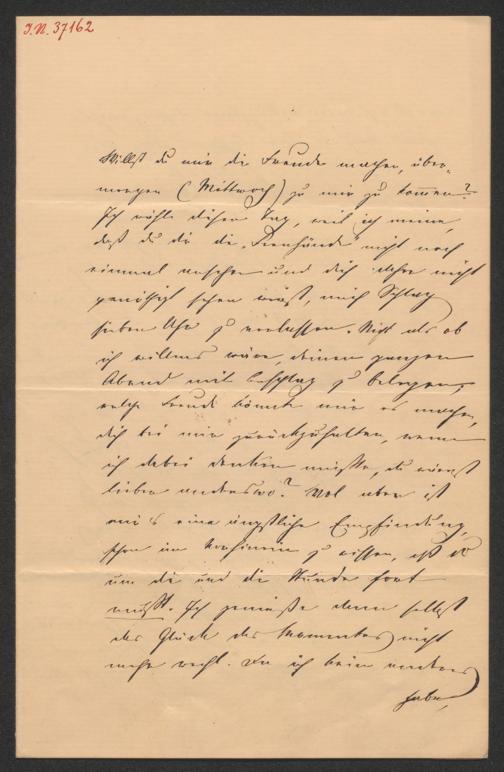 J.N. 37162
Willst du mir die Freude machen, über-
morgen (Mittwoch) zu mir zu kommen?
Ich wähle diesen Tag, weil ich meine,
daß du dir die „ nicht noch
einmal ansehen und dich daher nicht
genöthigt sehen wirst, mich Schlag
sieben Uhr zu verlassen. Nicht als ob
ich willens wäre, deinen ganzen
Abend mit Beschlag zu belegen,
welche Freude könnte mir es machen,
dich bei mir zurückzuhalten, wenn
ich dabei denken müßte, du wärst
lieber anderswo? Wol aber ist
mir's eine ängstliche Empfindung,
schon im Vorhinein zu wissen, daß du
um die und die Stunde fort
mußt. Ich genieße dann selbst
das Glück des Momentes nicht
mehr recht. Da ich kein anderes
habe,